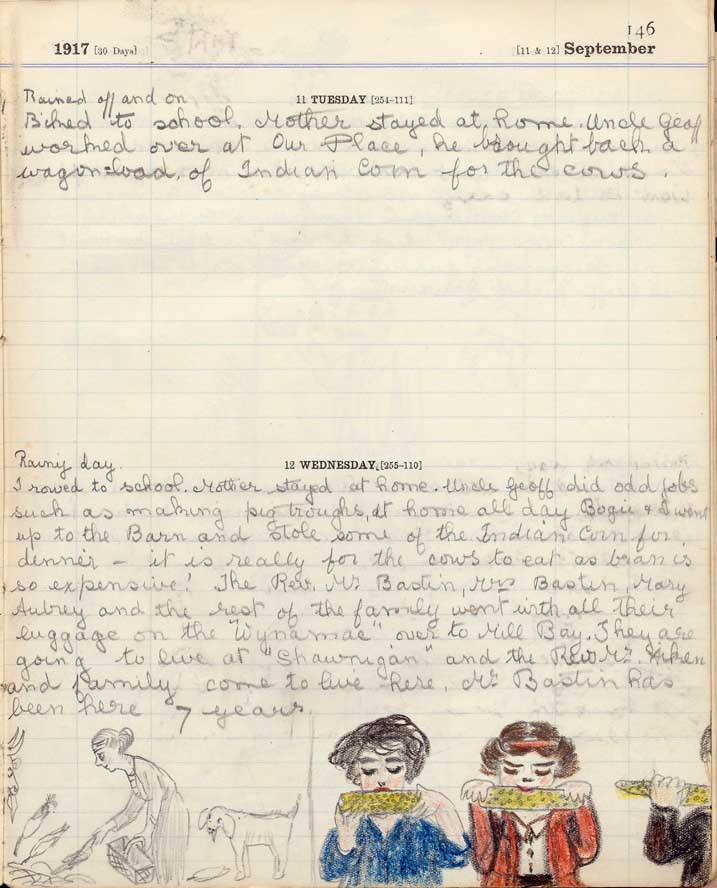 146
1917 [30 Days]
[11 & 12] September
Rained off and on
11 TUESDAY [254-111]
Biked to school. Mother stayed at home. Uncle Geoff
worked over at Our Place, he brought back a
wagon=load, of Indian Corn for the cows.
Rainy day.
12 WEDNESDAY. [255-110]
I rowed to school. Mother stayed at home. Uncle Geoff did odd jobs
such as making pig troughs, at home all day Bogie & I went
up to the Barn and stole some of the Indian Corn for
dinner – it is really for the cows to eat as bran is
so expensive! The Rev. Mr. Bastin, Mrs Bastin, Mary
Aubrey and the rest of the family went with all their
luggage on the "Wynamac" over to Mill Bay. They are
going to live at "Shawnigan" and the Rev. Mr.
and family come to live here. Mr Bastin has
been here 7 years.